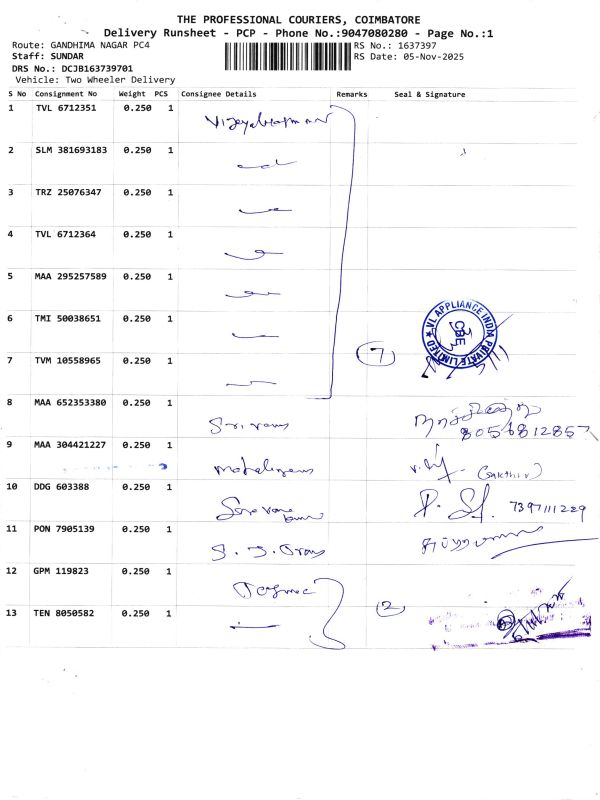 THE PROFESSIONAL COURIERS, COIMBATORE
Delivery Runsheet - PCP - Phone No.:9047080280 - Page No.:1
Route: GANDHIMA NAGAR PC4
RS No.: 1637397
Staff: SUNDAR
RS Date: 05-Nov-2025
DRS No.: DCJB163739701
Vehicle: Two Wheeler Delivery
S No Consignment No Weight PCS Consignee Details Remarks Seal & Signature
1 TVL 6712351 0.250 1
2 SLM 381693183 0.250 1
3 TRZ 25076347 0.250 1
4 TVL 6712364 0.250 1
5 MAA 295257589 0.250 1
6 TMI 50038651 0.250 1
VL APPLIANCE INDIA PRIVATE LIMITED
CBE
7 TVM 10558965 0.250 1 7
8 MAA 652353380 0.250 1 Sri vans
8056812857
9 MAA 304421227 0.250 1 (Sakthi v)
10 DDG 603388 0.250 1 7397111229
11 PON 7905139 0.250 1
12 GPM 119823 0.250 1
13 TEN 8050582 0.250 1 2